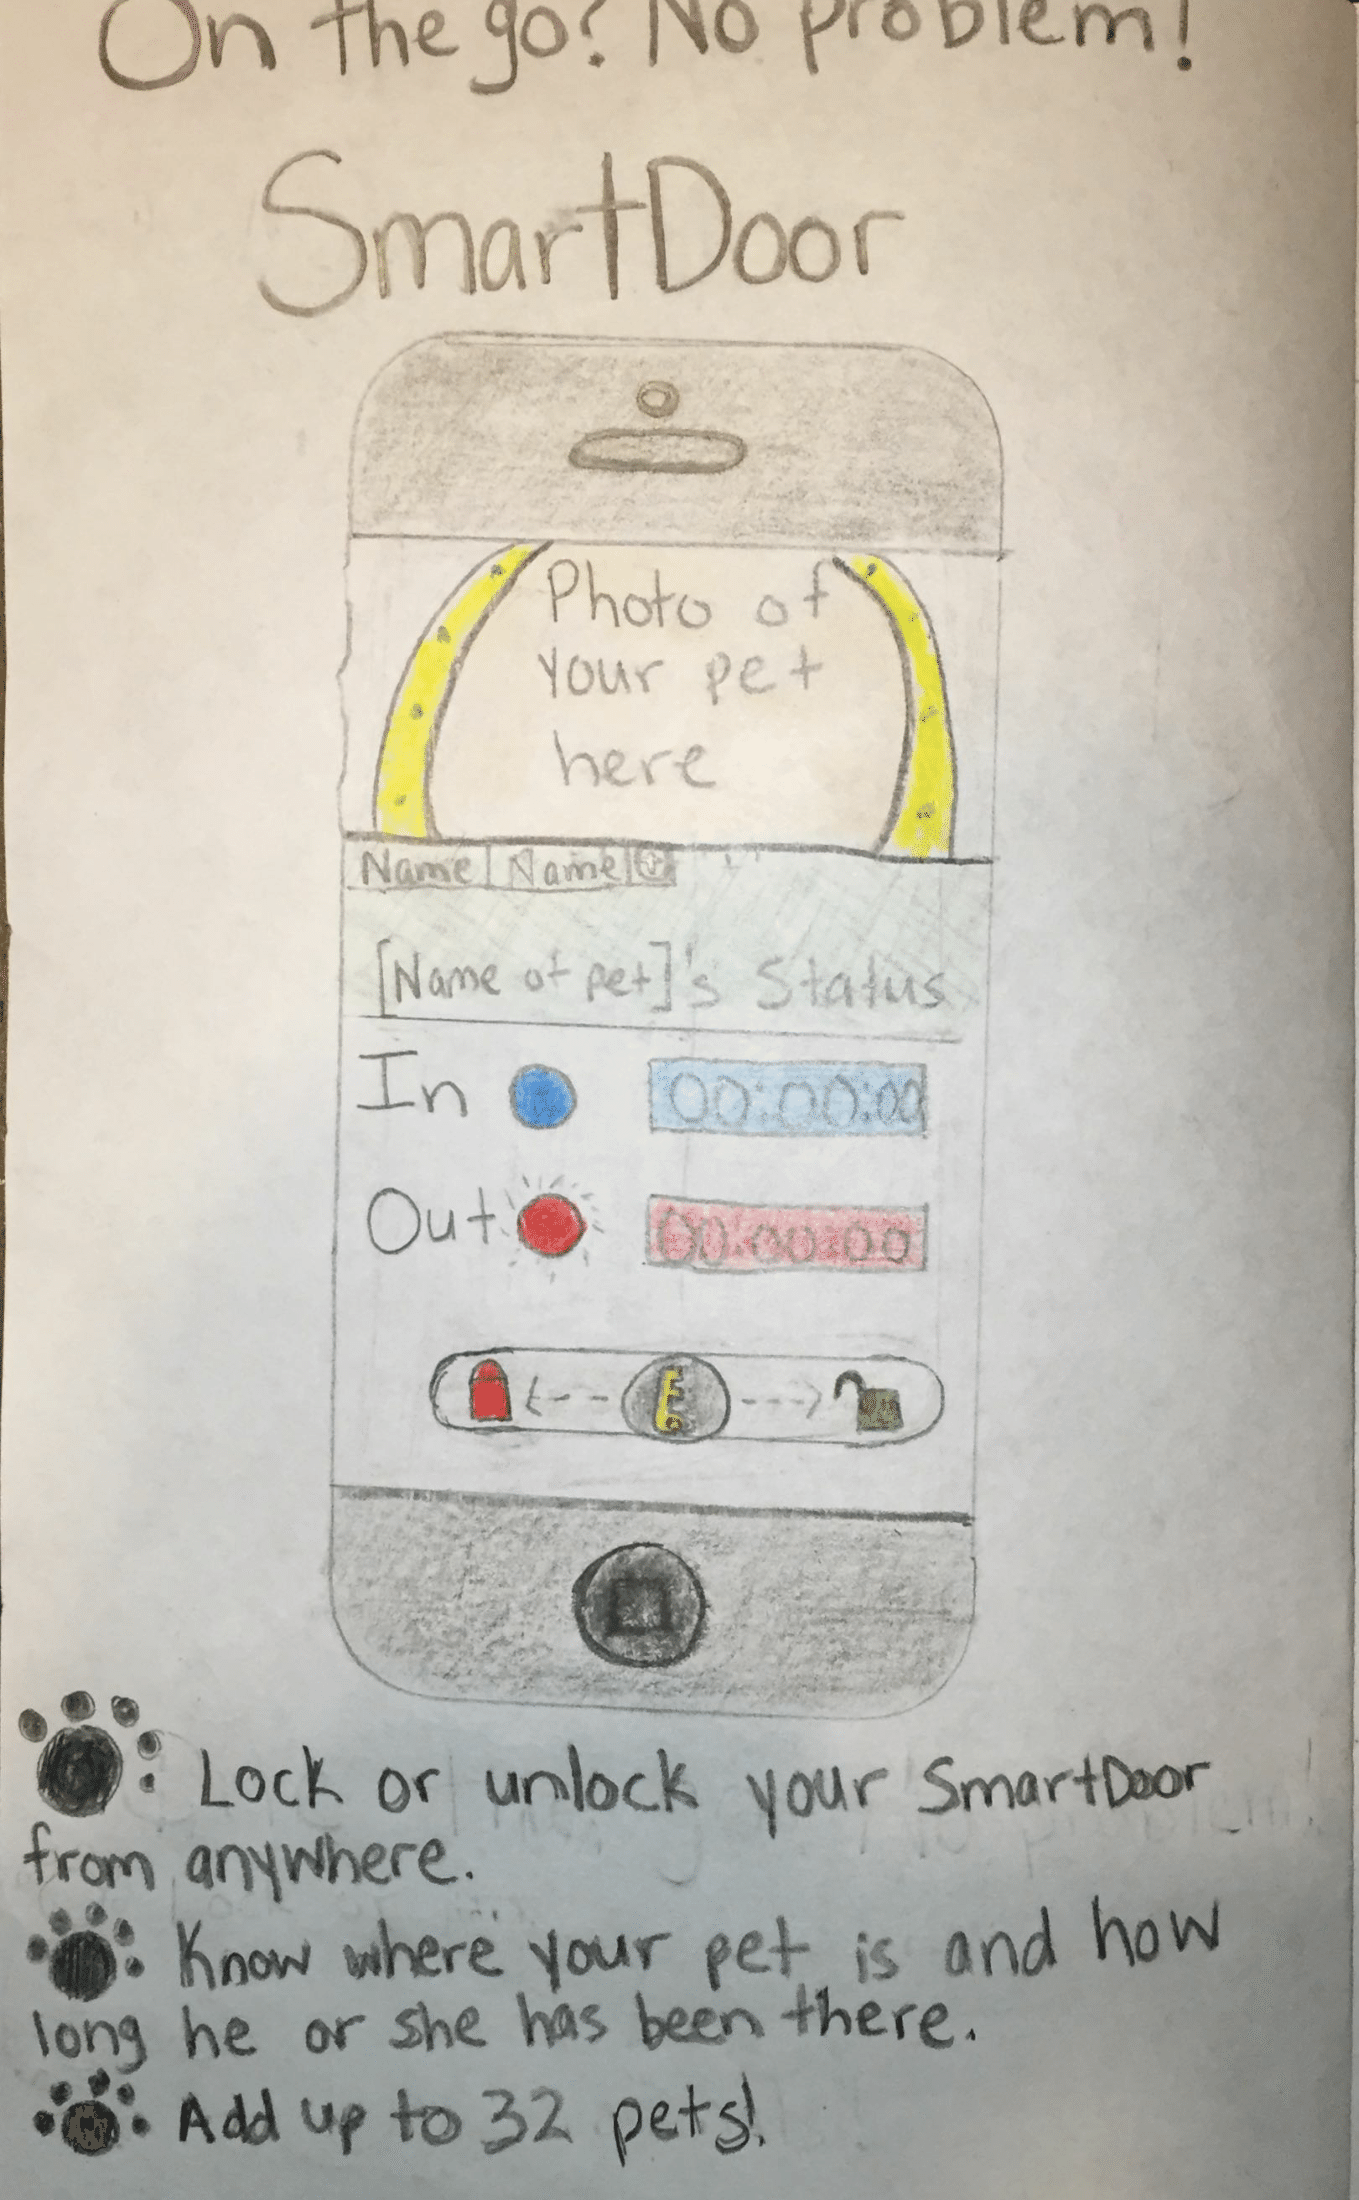 On the go? No problem!
SmartDoor
Photo of
your pet
here
Name Name +
[Name of pet]'s Status
In 00:00:00
Out 00:00:00
Lock or unlock your SmartDoor
from anywhere.
Know where your pet is and how
long he or she has been there.
Add up to 32 pets!